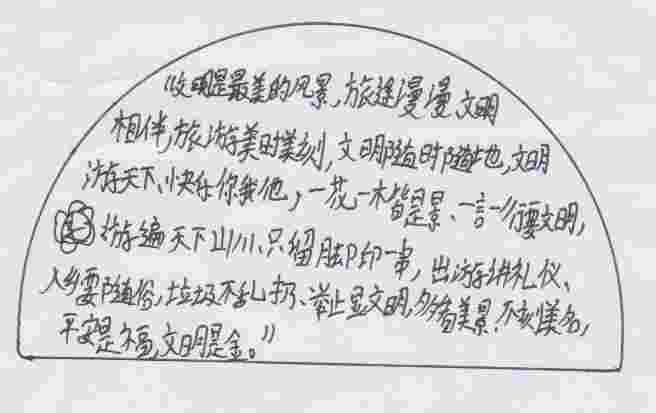 “文明是最美的风景,旅途漫漫,文明
相伴,旅游美时美刻,文明随时随地,文明
游天下、快乐你我他,一花一木皆是景、一言一行要文明,
游遍天下山川、只留脚印一串,出游讲礼仪、
入乡要随俗,垃圾不乱扔、举止显文明,多看美景,不刻美名,
平安是福,文明是金。”